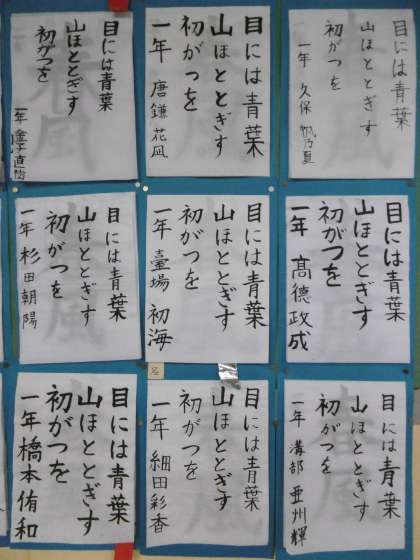 目には青葉
山ほととぎす
初がつを
一年 久保 帆乃夏
目には青葉
山ほととぎす
初がつを
一年 唐鎌 花凪
目には青葉
山ほととぎす
初がつを
一年 金子
目には青葉
山ほととぎす
初がつを
一年 髙德政成
目には青葉
山ほととぎす
初がつを
一年 臺場 初海
目には青葉
山ほととぎす
初がつを
一年 杉田朝陽
目には青葉
山ほととぎす
初がつを
一年 溝部 亜州輝
目には青葉
山ほととぎす
初がつを
一年 細田彩香
目には青葉
山ほととぎす
初がつを
一年橋本侑和